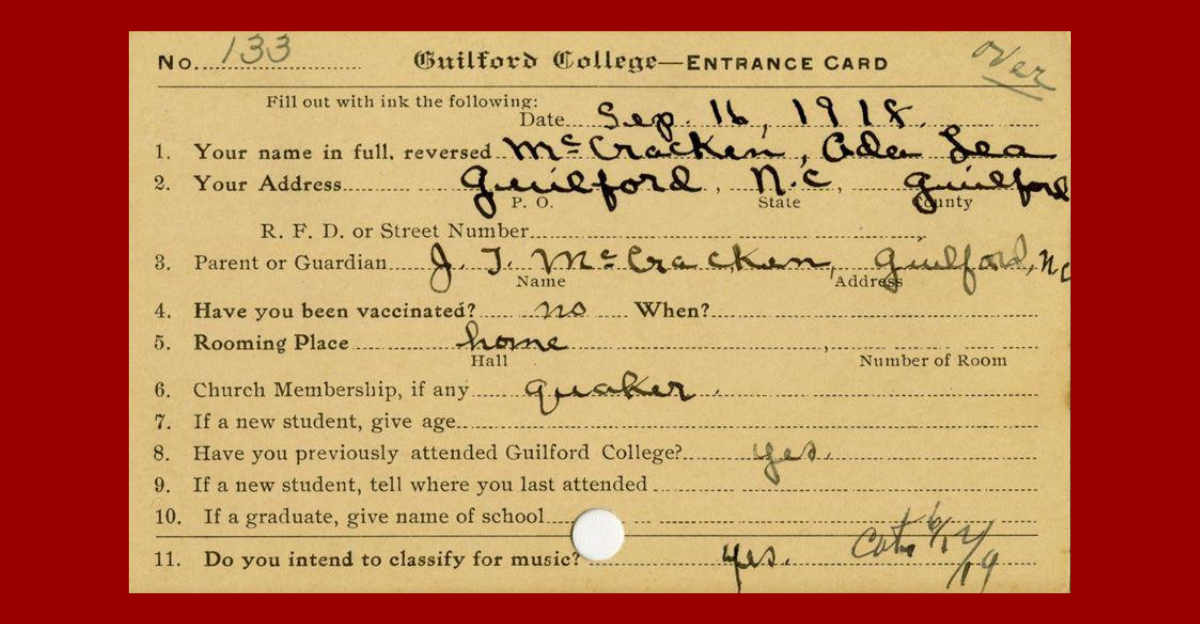 No. 133 Guilford College—ENTRANCE CARD over
Fill out with ink the following:
Date Sep. 16, 1918.
1. Your name in full, reversed McCracken, Ada Lea
2. Your Address Guilford, N.C, Guilford
P. O. State County
R. F. D. or Street Number
3. Parent or Guardian J. T. McCracken, Guilford, NC
Name Address
4. Have you been vaccinated? no When?
5. Rooming Place home
Hall Number of Room
6. Church Membership, if any Quaker.
7. If a new student, give age
8. Have you previously attended Guilford College? yes.
9. If a new student, tell where you last attended
10. If a graduate, give name of school
11. Do you intend to classify for music? yes. 6/12/19